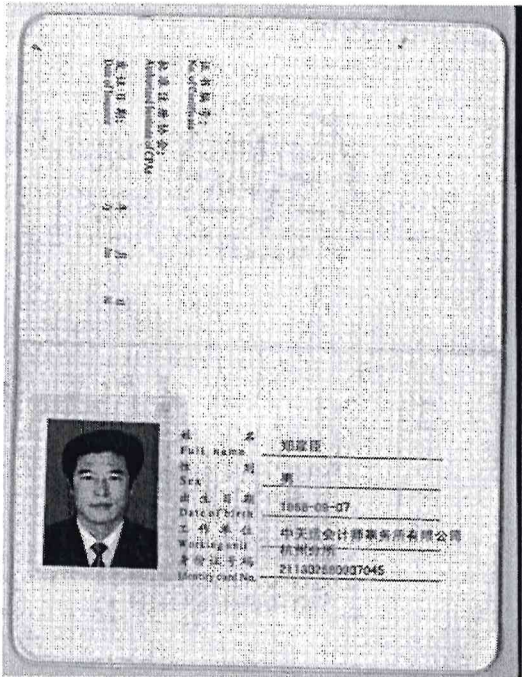 证书编号:
No. of Certificate
批准注册协会:
Authorized Institute of CPAs
发证日期:
Date of Issuance
年 月 日
姓 名
Full name
性 别
Sex
男
出生日期
Date of birth
工作单位
Working unit
中天运会计师事务所有限公司
杭州分所
身份证号码
Identity card No.